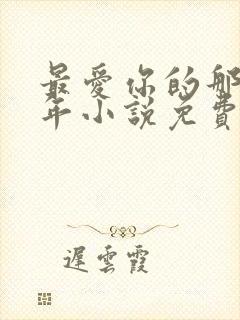 最愛你的那
年小說免費
遲雲霞